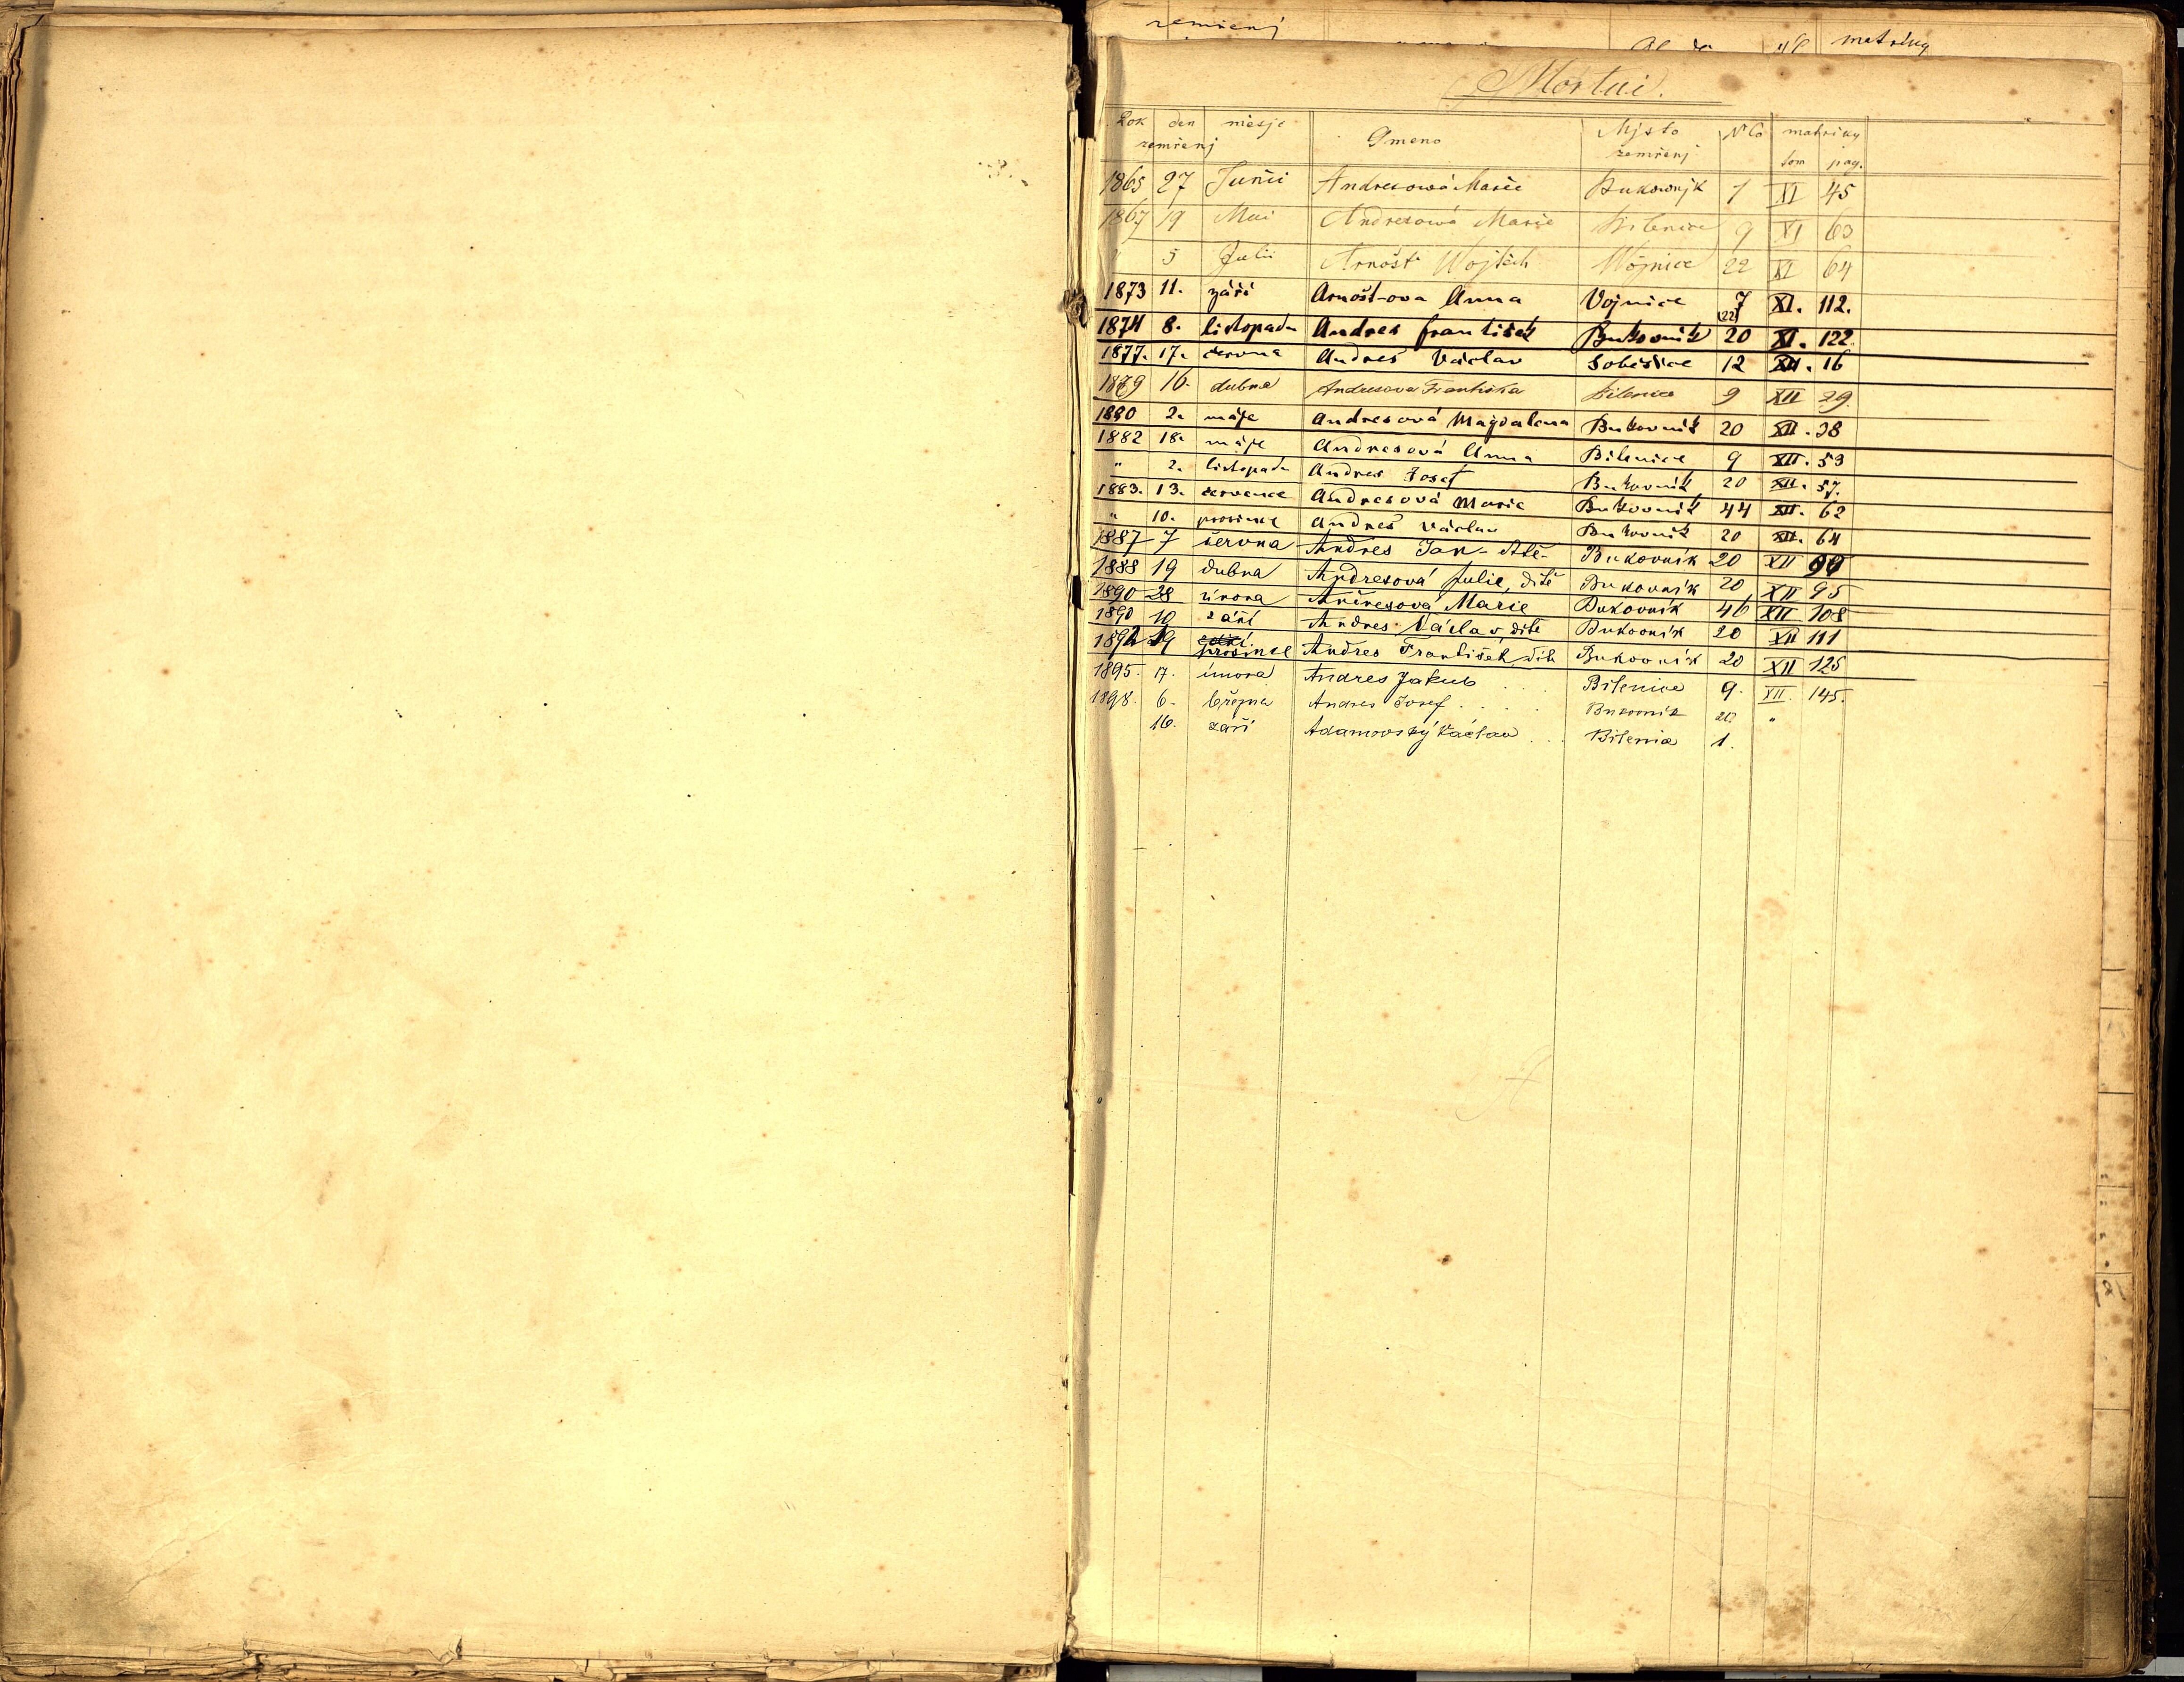 zemřenj matriky
Mortui.
Rok den měsjc Gmeno Mjsto N Co matriky
zemřenj zemřenj tom pag.
1865 27 Junii Andresowá Marie Bukownjk 7 XI 45
1867 19 Mai Andresowá Marie Bilenice 9 XI 63
" 5 Julii Arnošt Wojtěch Wojnice 22 XI 64
1873 11. září Arnošt-ova Anna Vojnice 7 XI. 112.
(22)
1874 8. listopadu Andres František Bukovník 20 XI. 122
1877. 17. června Andres Václav Soběšice 12 XII. 16
1879 16. dubna Andresova Františka Bilenice 9 XII 29.
1880 2. máje Andresová Magdalena Bukovník 20 XII. 38
1882 18. máje Andresová Anna Bilenice 9 XII. 53
" 2. listopadu Andres Josef Bukovník 20 XII. 57.
1883. 13. července Andresová Marie Bukovník 44 XII. 62
" 10. prosince Andres Václav Bukovník 20 XII. 64
1887 7 června Andres Jan - dítě - Bukovník 20 XII 90
1888 19 dubna Andresová Julie, dítě Bukovník 20 XII 95
1890 28 února Andresová Marie Bukovník 46 XII 108
1890 10 září Andres Václav, dítě Bukovník 20 XII 111
1892 19 září prosince Andres František, dítě Bukovník 20 XII 125
1895. 7. února Andres Jakub . . . Bilenice 9. XII. 145.
1898. 6. března Andres Josef . . . . Bukovník 20 "
16. září Adamovský Václav . . . Bilenice 1.